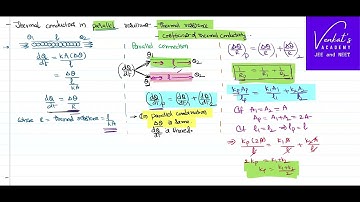 Thermal conductors in parallel
Thermal resistance
Coefficient of thermal conductivity
θ1 θ2
dQ/dt = kA(Δθ)/l
= Δθ/(l/kA)
dQ/dt = Δθ/R
where R = thermal resistance = l/kA
Parallel Connection
(dQ/dt)p = (dQ/dt)1 + (dQ/dt)2
In parallel combination
Δθ is same.
dQ/dt is shared.
(Δθ/R)p = (Δθ/R)1 + (Δθ/R)2
1/Rp = 1/R1 + 1/R2
kpAp/lp = k1A1/l1 + k2A2/l2
If A1 = A2 = A
Ap = A1 + A2 = 2A
If l1 = l2 ⇒ lp = l
⇒ kp(2A)/l = k1A/l + k2A/l
2kp = k1 + k2
kp = (k1 + k2)/2
Venkat's
ACADEMY
JEE and NEET